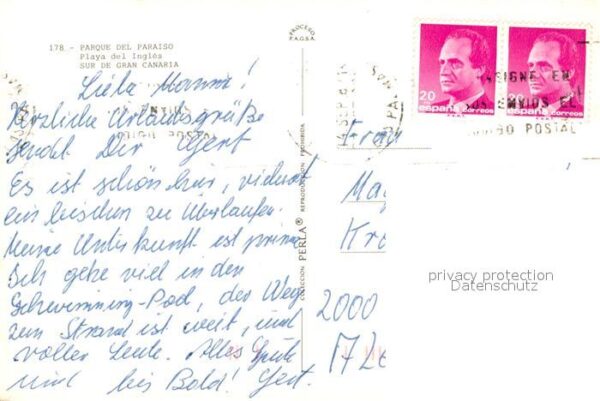 178 - PARQUE DEL PARAISO
Playa del Inglés
SUR DE GRAN CANARIA
Liebe Mama!
Herzliche Urlaubsgrüße
sendet Dir Gert
Es ist schön hier, vielleicht
ein bisschen zu überlaufen.
Meine Unterkunft ist prima
Ich gehe viel in den
Schwimming-Pool, der Weg
zum Strand ist weit, und
voller Leute. Alles Gute
und bis Bald! Gert.
PROCESO
F.A.G.S.A.
COLECCION PERLA® REPRODUCCION PROHIBIDA
20
españa correos
20
españa correos
CONSIGNE EN
SUS ENVIOS EL
CODIGO POSTAL
Frau
Ma
Kr
2000
privacy protection
Datenschutz